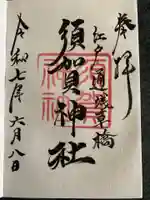 奉拝
江戸通浅草橋
須賀神社
令和七年六月八日